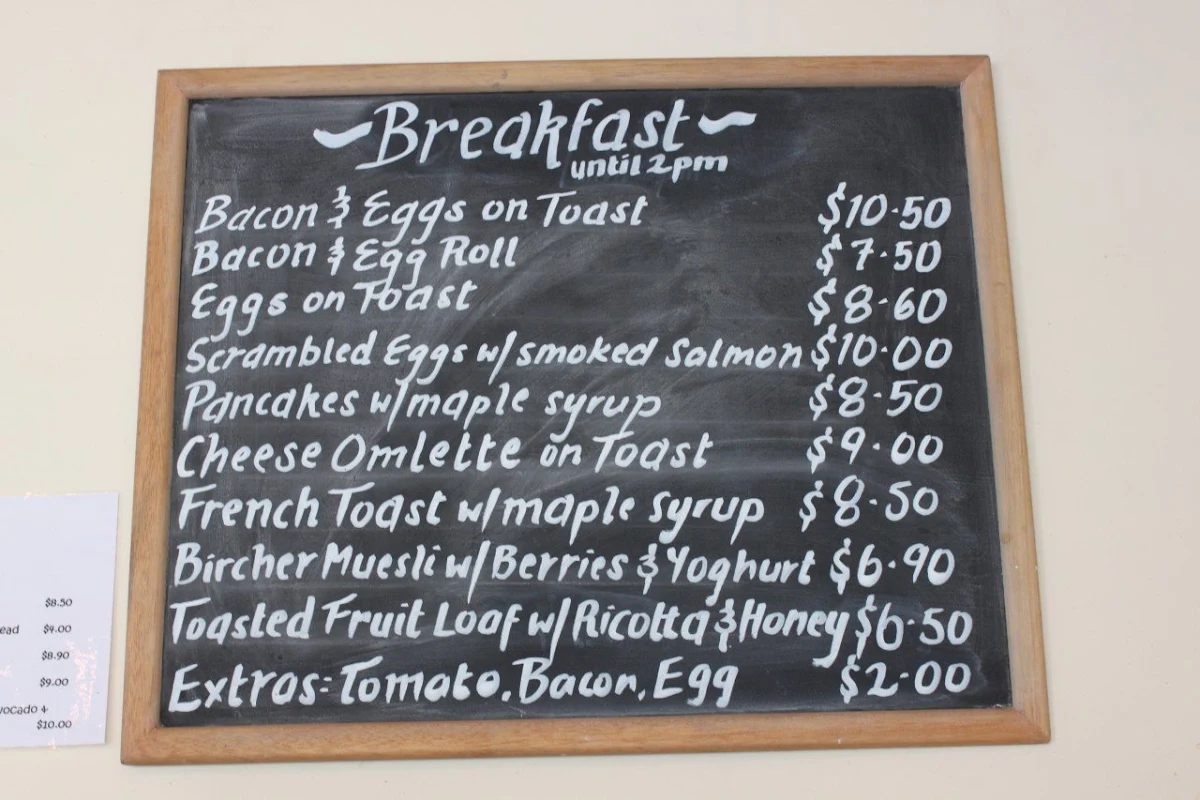 ~Breakfast~
until 2pm
Bacon & Eggs on Toast $10.50
Bacon & Egg Roll $7.50
Eggs on Toast $8.60
Scrambled Eggs w/smoked Salmon $10.00
Pancakes w/maple syrup $8.50
Cheese Omlette on Toast $9.00
French Toast w/maple syrup $8.50
Bircher Muesli w/Berries & Yoghurt $6.90
Toasted Fruit Loaf w/Ricotta & Honey $6.50
Extras: Tomato, Bacon, Egg $2.00
$8.50
ead $9.00
$8.90
$9.00
vocado &
$10.00